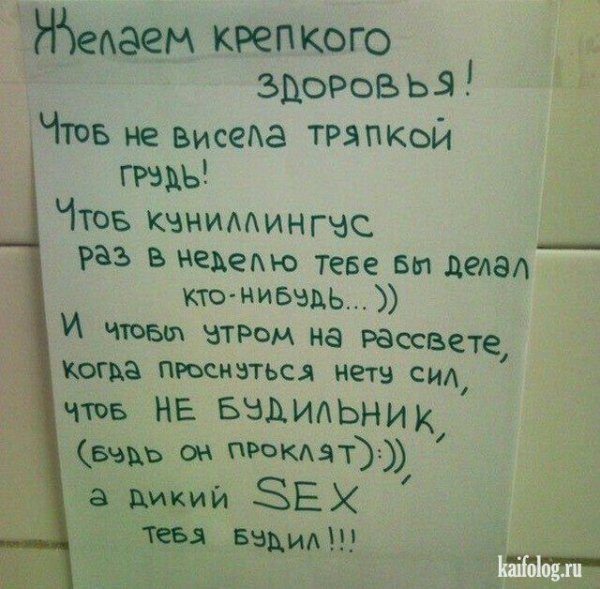 Желаем крепкого
здоровья!
Чтоб не висела тряпкой
грудь!
Чтоб куниллингус
раз в неделю тебе бы делал
кто-нибудь...))
И чтобы утром на рассвете,
когда проснуться нету сил,
чтоб НЕ БУДИЛЬНИК,
(будь он проклят):)),
а дикий SEX
тебя будил!!!
kaifolog.ru